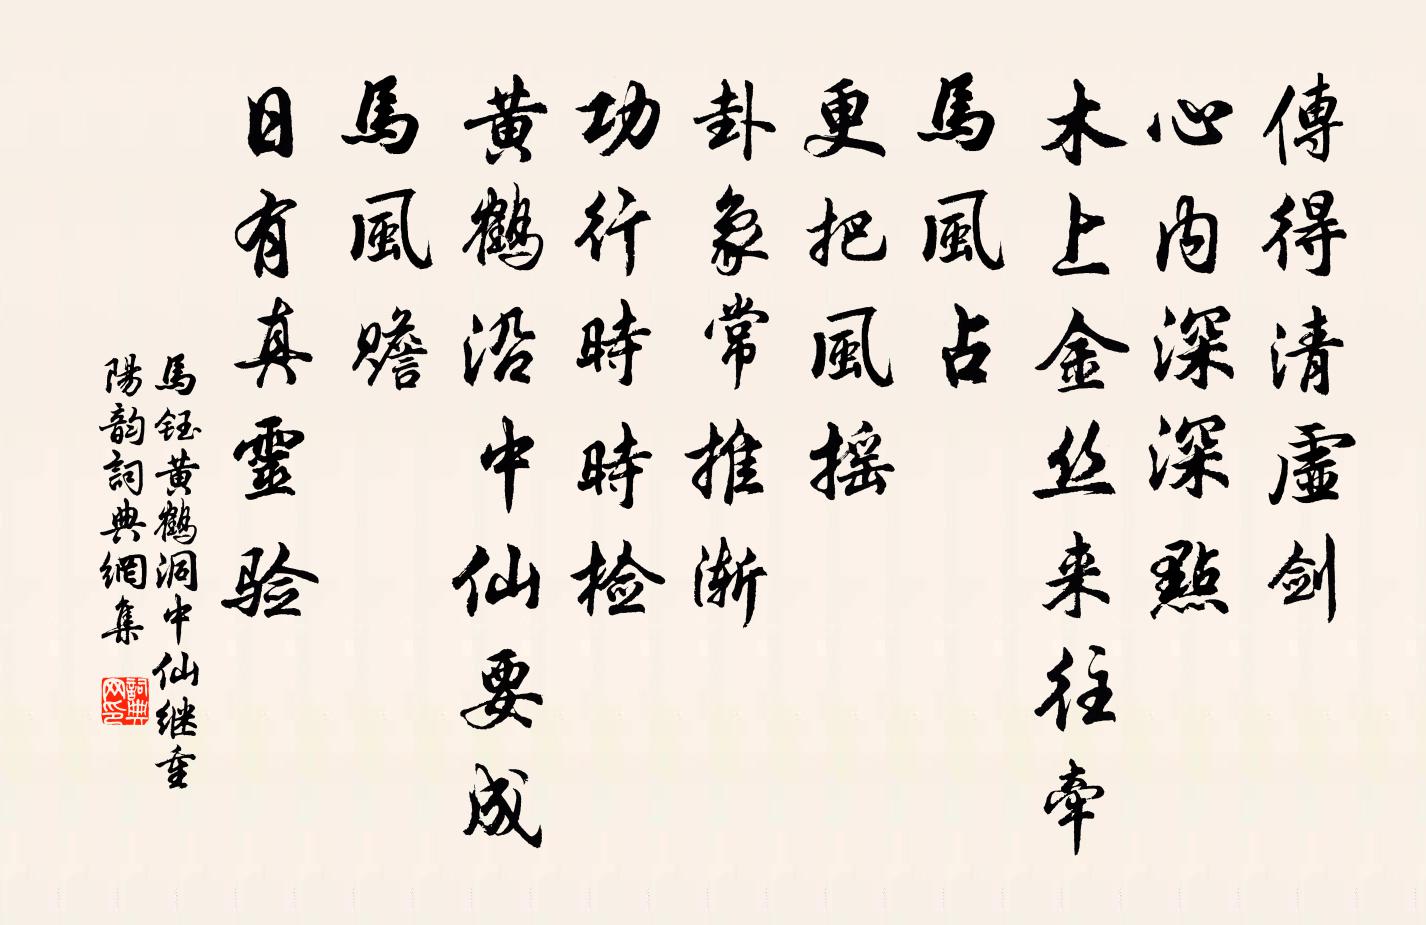 傳得清虛剑
心内深深點
木上金丝来往牵
馬風占
更把風摇
卦象常推渐
功行時時檢
黄鶴沿中仙要成
馬風贍
日有真靈验
馬鈺黄鶴洞中仙继重
陽韵詞典網集
詞典
网印